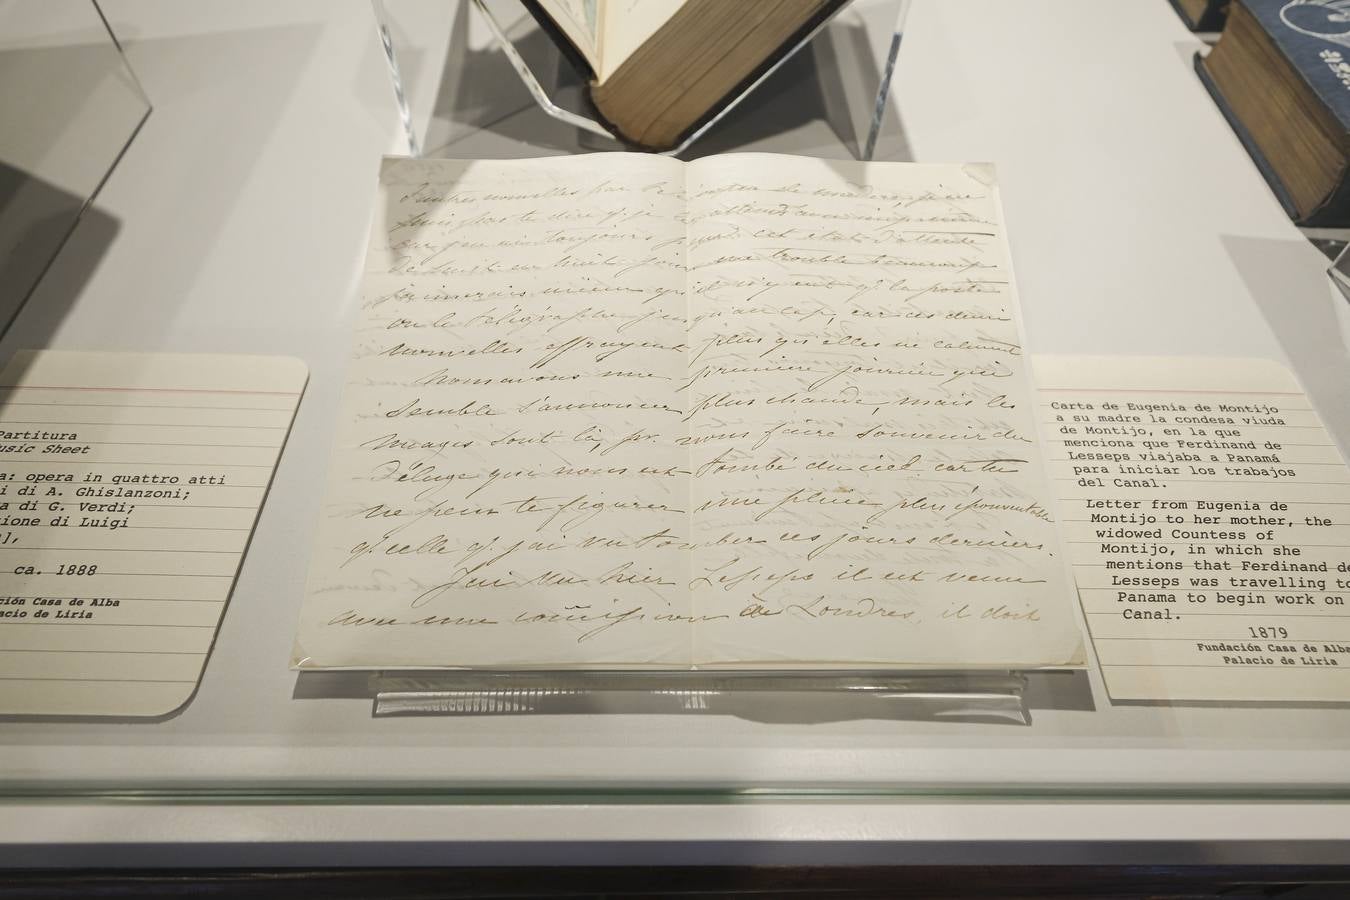 d'autres nouvelles par
puis pas te dire q. je
car j'en ai toujours peur. cet état d'attente
de huit en huit jours me trouble beaucoup
j'aimerais mieux qu'il n'y eut q. la poste
ou le télégraphe jusqu'au cap, car ces demi
nouvelles effrayent plus qu'elles ne calment
Nous avons une première journée qui
semble s'annoncer plus chaude, mais les
nuages sont là, pr. nous faire souvenir du
déluge qui nous est tombé du ciel. car tu
ne peux te figurer une pluie plus épouvantable
q. celle q. j'ai vu tomber ces jours derniers.
J'ai vu hier Lesseps il est venu
avec une commission de Londres, il doit
Partitura
usic Sheet
a: opera in quattro atti
i di A. Ghislanzoni;
a di G. Verdi;
ione di Luigi
],
ca. 1888
ción Casa de Alba
acio de Liria
Carta de Eugenia de Montijo
a su madre la condesa viuda
de Montijo, en la que
menciona que Ferdinand de
Lesseps viajaba a Panamá
para iniciar los trabajos
del Canal.
Letter from Eugenia de
Montijo to her mother, the
widowed Countess of
Montijo, in which she
mentions that Ferdinand de
Lesseps was travelling to
Panama to begin work on
Canal.
1879
Fundación Casa de Alba
Palacio de Liria